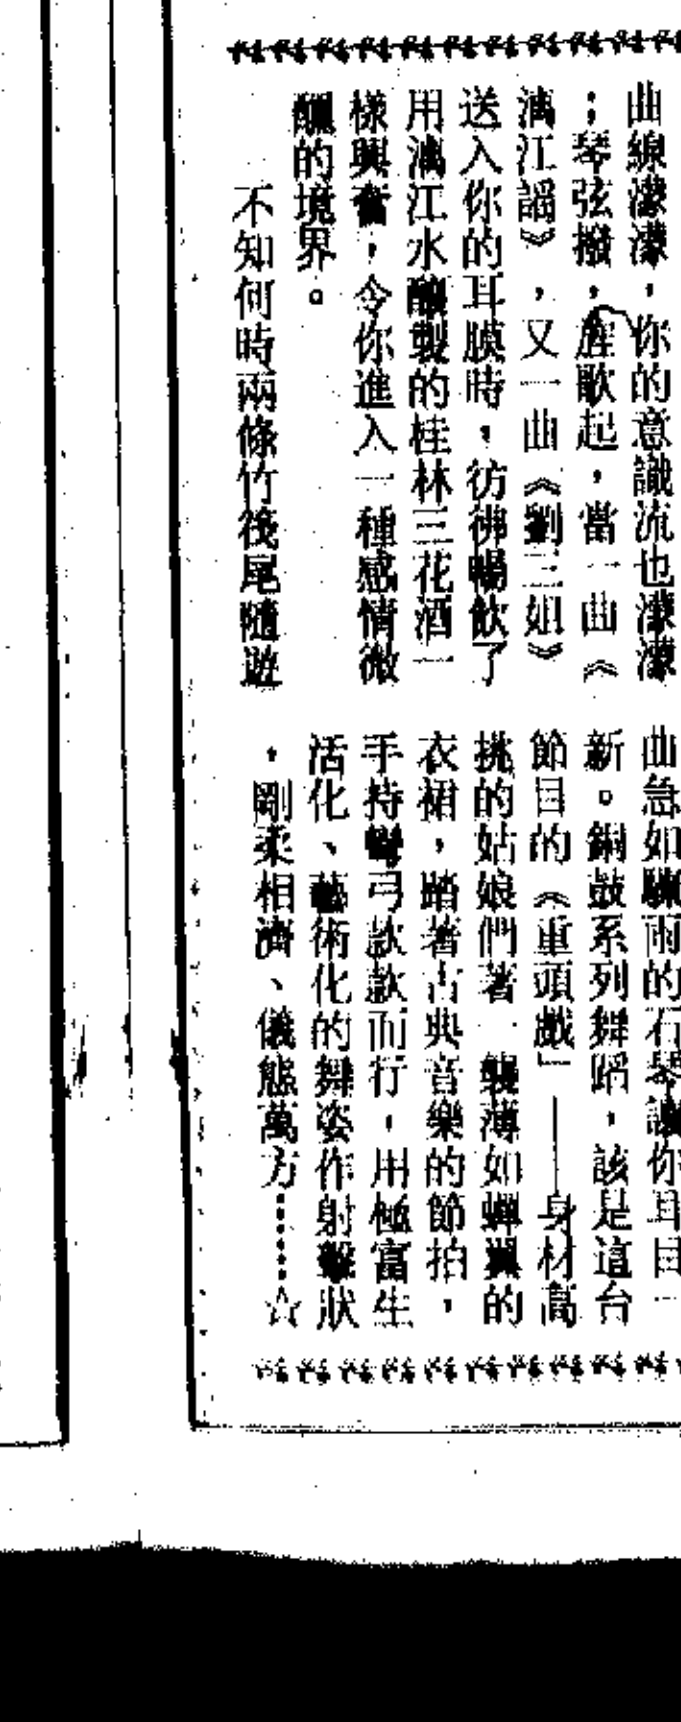 曲線濛濛，你的意識流也濛濛
；琴弦撥，腔歌起，當一曲《
漓江謡》，又一曲《劉三姐》
送入你的耳膜時，彷彿暢飲了
用漓江水釀製的桂林三花酒一
樣興奮，令你進入一種感情微
醺的境界。
不知何時兩條竹筏尾隨遊
曲急如驟雨的石琴讓你耳目一
新。銅鼓系列舞蹈，該是這台
節目的《重頭戲」——身材高
挑的姑娘們著一襲薄如蟬翼的
衣裙，踏著古典音樂的節拍，
手持彎弓款款而行，用極富生
活化、藝術化的舞姿作射擊狀
，剛柔相濟、儀態萬方……☆